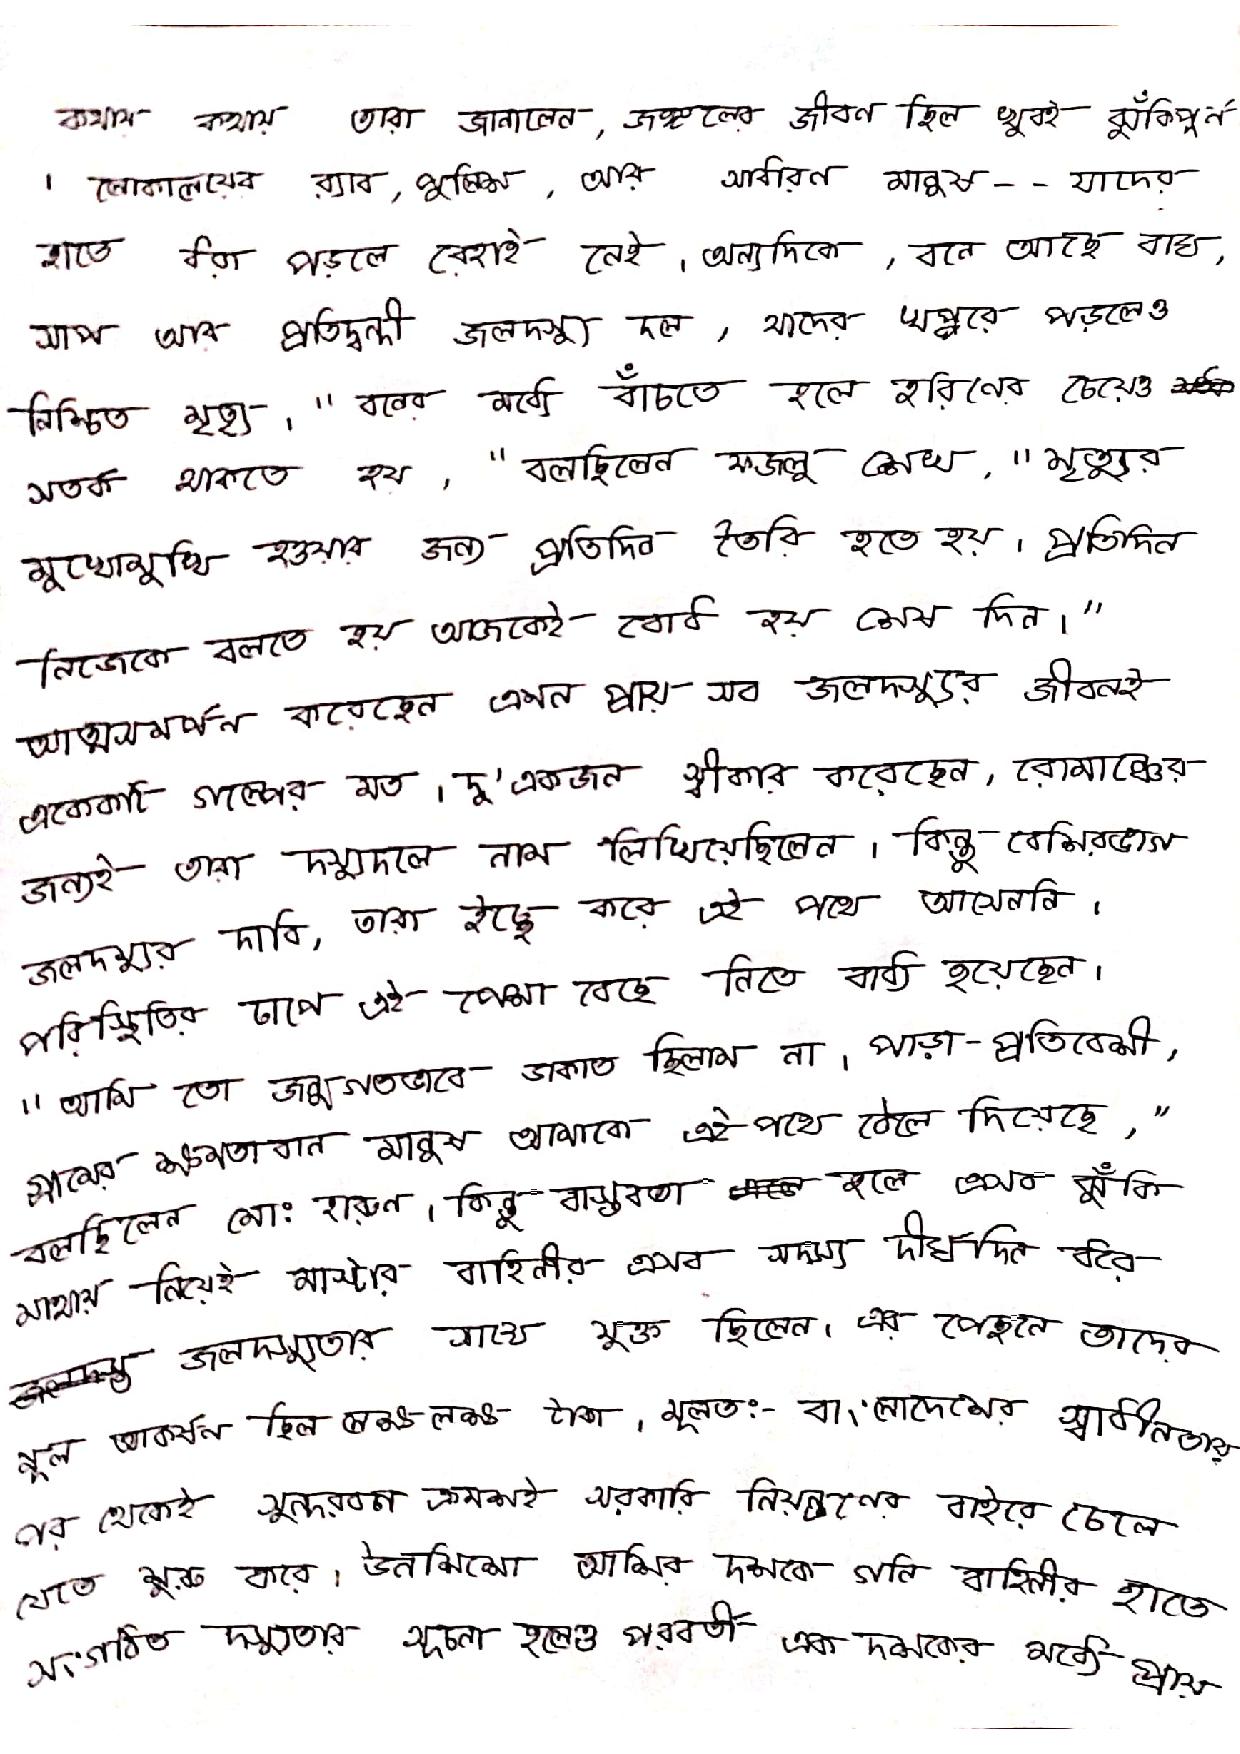 কথায় কথায় তারা জানালেন, জঙ্গলের জীবন ছিল খুবই ঝুঁকিপূর্ন
। লোকালয়ের র‍্যাব, পুলিশ, আর সাধারণ মানুষ-- যাদের
হাতে ধরা পড়লে রেহাই নেই। অন্যদিকে, বনে আছে বাঘ,
সাপ আর প্রতিদ্বন্দী জলদস্যু দল, যাদের খপ্পরে পড়লেও
নিশ্চিত মৃত্যু। "বনের মধ্যে বাঁচতে হলে হরিণের চেয়েও
সতর্ক থাকতে হয়, "বলছিলেন ফজলু শেখ, "মৃত্যুর
মুখোমুখি হওয়ার জন্য প্রতিদিন তৈরি হতে হয়। প্রতিদিন
নিজেকে বলতে হয় আজকেই বোধ হয় শেষ দিন।"
আত্মসমর্পন করেছেন এমন প্রায় সব জলদস্যুর জীবনই
একেকটি গল্পের মত। দু'একজন স্বীকার করেছেন, রোমাঞ্চের
জন্যই তারা দস্যুদলে নাম লিখিয়েছিলেন। কিন্তু বেশিরভাগ
জলদস্যুর দাবি, তারা ইচ্ছে করে এই পথে আসেননি।
পরিস্থিতির চাপে এই পেশা বেছে নিতে বাধ্য হয়েছেন।
"আমি তো জন্মগতভাবে ডাকাত ছিলাম না। পাড়া-প্রতিবেশী,
গ্রামের ক্ষমতাবান মানুষ আমাকে এই পথে ঠেলে দিয়েছে,"
বলছিলেন মোঃ হারুন। কিন্তু বাস্তবতা হলে এসব ঝুঁকি
মাথায় নিয়েই মাস্টার বাহিনীর এসব সদস্য দীর্ঘদিন ধরে
জলদস্যুতার সাথে যুক্ত ছিলেন। এর পেছনে তাদের
মূল আকর্ষন ছিল লক্ষ লক্ষ টাকা। মূলত:- বাংলাদেশের স্বাধীনতার
পর থেকেই সুন্দরবন ক্রমশই সরকারি নিয়ন্ত্রণের বাইরে চলে
যেতে শুরু করে। উনশিশো আশির দশকে গনি বাহিনীর হাতে
সংগঠিত দস্যুতার সূচনা হলেও পরবর্তী এক দশকের মধ্যে প্রায়